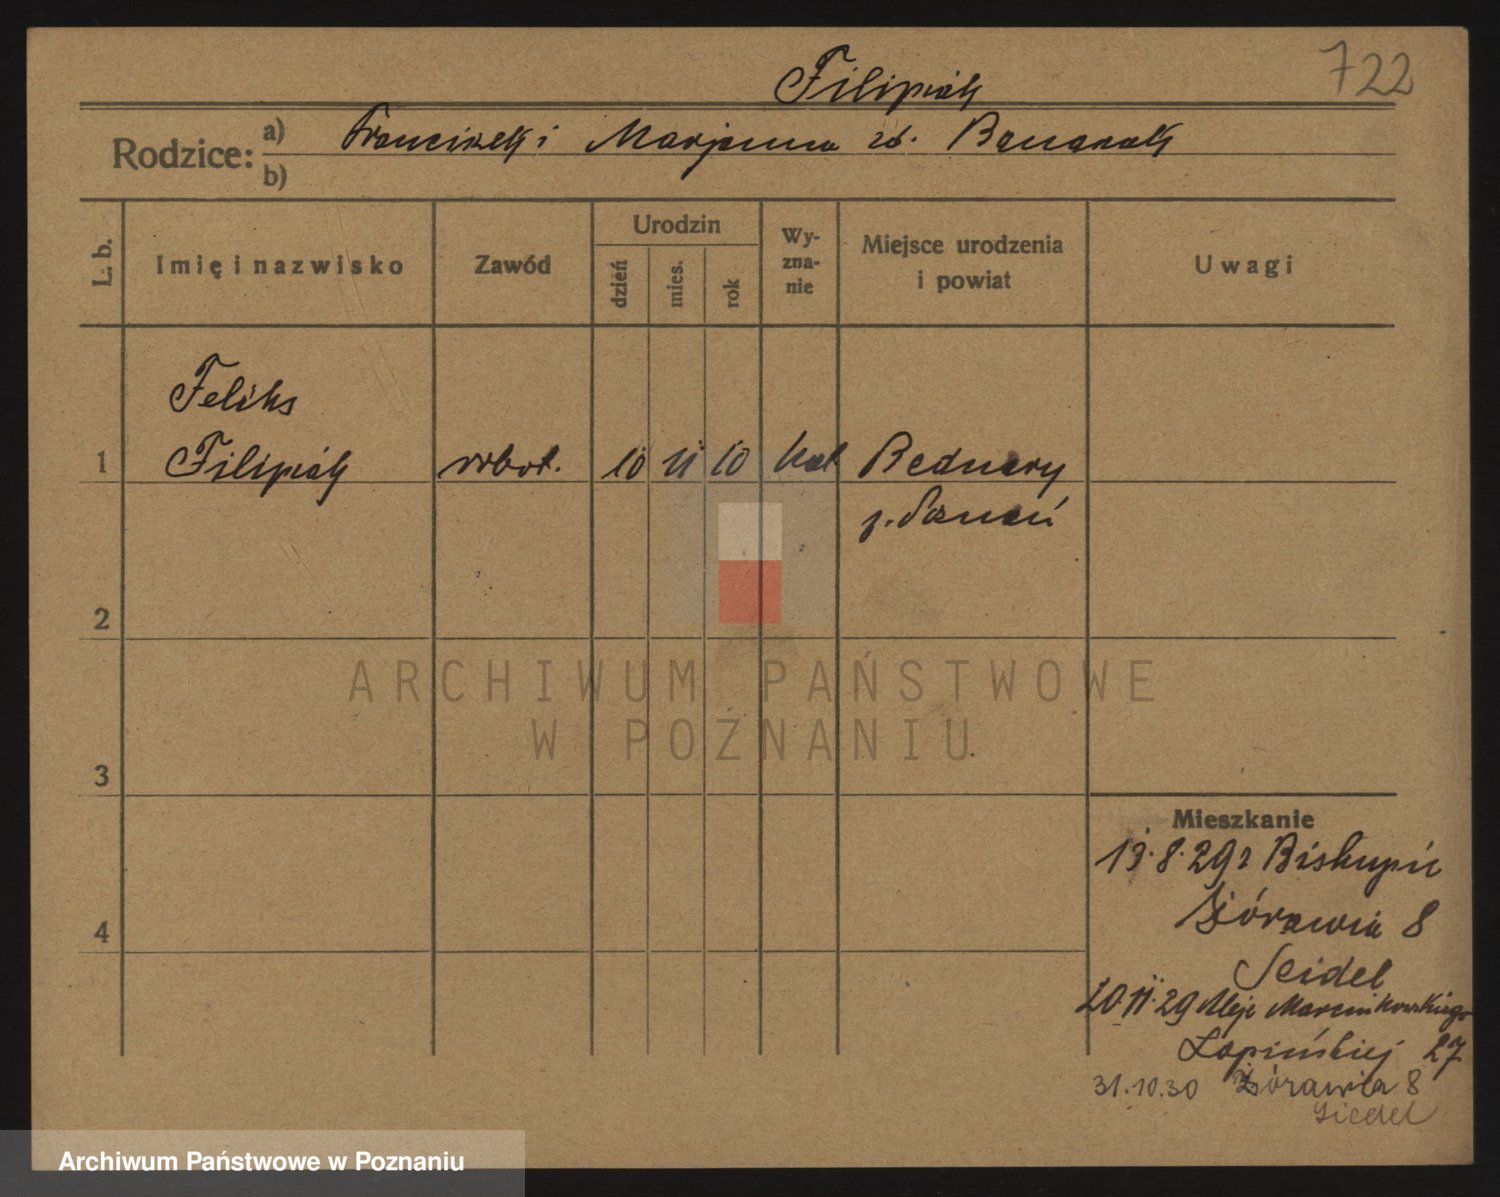 722
Filipiak
Rodzice: a) Franciszek i Marjanna zd. Banaszak
b)
L. b. Imię i nazwisko Zawód Urodzin dzień mies. rok Wy-zna-nie Miejsce urodzenia i powiat Uwagi
Feliks
1 Filipiak robot. 10 11 10 kat Bednary
p. Poznań
2
ARCHIWUM PAŃSTWOWE
W POZNANIU
3
Mieszkanie
13.8.29 z Biskupic
4 Żórawia 8
Seidel
20.11.29 Aleje Marcinkowskiego
Łopińskiej 27
31.10.30 Żórawia 8
Siedel
Archiwum Państwowe w Poznaniu